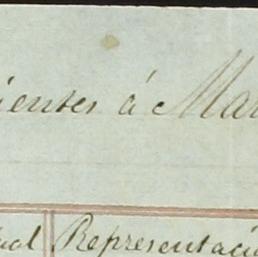 ientes á Mar
ual Representació